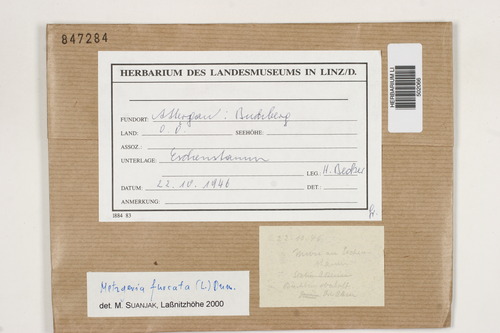 847284
HERBARIUM DES LANDESMUSEUMS IN LINZ/D.
FUNDORT: Attergau: Buchberg
LAND: O.Ö. SEEHÖHE:
ASSOZ.:
UNTERLAGE: Eschenstamm
LEG.: H. Becker
DATUM: 22.10.1946 DET.:
ANMERKUNG:
1884 83
HERBARIUM LI
502066
22.10.46
Metzgeria furcata (L.) Dum.
det. M. SUANJAK, Laßnitzhöhe 2000